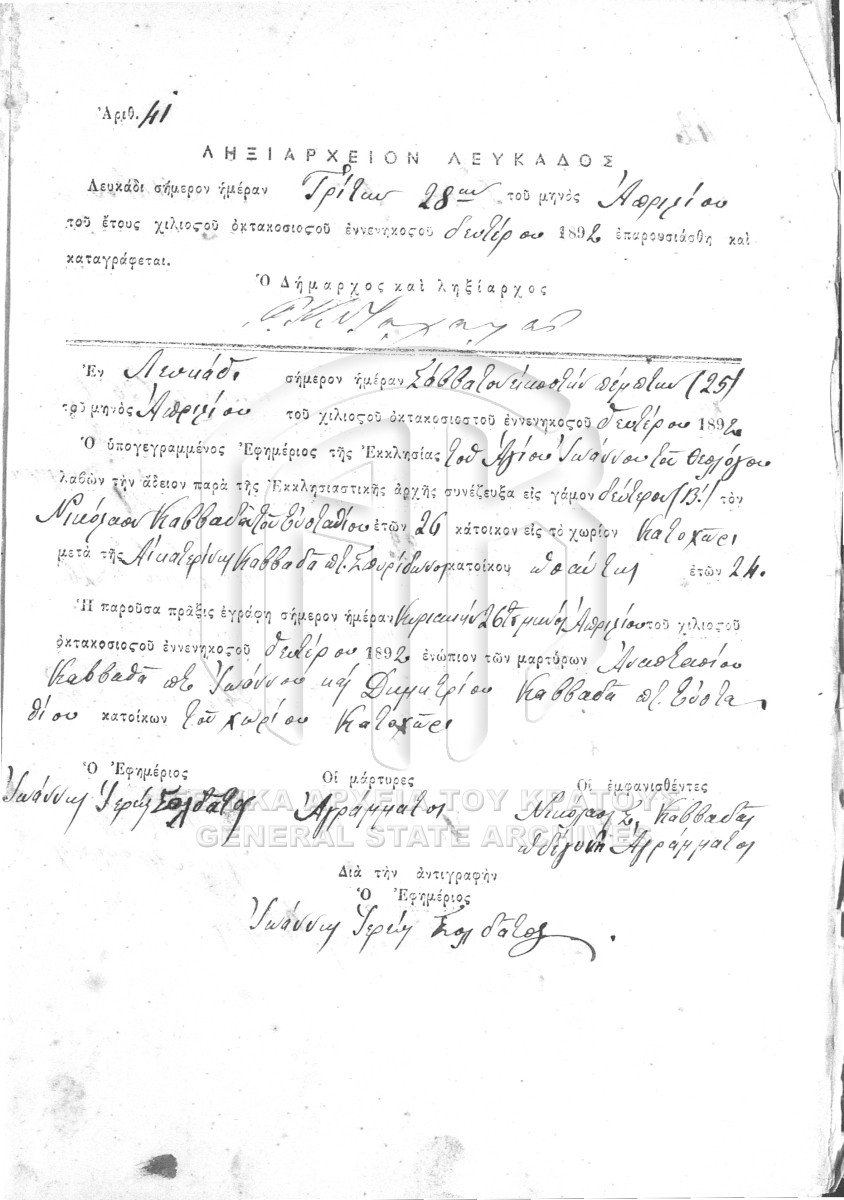 Ἀριθ. 41
ΛΗΞΙΑΡΧΕΙΟΝ ΛΕΥΚΑΔΟΣ
Λευκάδι σήμερον ἡμέραν Τρίτην 28ην τοῦ μηνὸς Ἀπριλίου
τοῦ ἔτους χιλιοςοῦ ὀκτακοσιοςοῦ ἐννενηκοςοῦ δευτέρου 1892 ἐπαρουσιάσθη καὶ
καταγράφεται.
Ὁ Δήμαρχος καὶ ληξίαρχος
Ἐν Λευκάδι σήμερον ἡμέραν Σάββατον εἰκοστὴν πέμπτην (25)
τοῦ μηνὸς Ἀπριλίου τοῦ χιλιοςοῦ ὀκτακοσιοστοῦ ἐννενηκοςοῦ δευτέρου 1892
Ὁ ὑπογεγραμμένος Ἐφημέριος τῆς Ἐκκλησίας τοῦ Ἁγίου Ἰωάννου τοῦ Θεολόγου
λαβὼν τὴν ἄδειον παρὰ τῆς Ἐκκλησιαστικῆς ἀρχῆς συνέζευξα εἰς γάμον δεύτερον (Β΄) τὸν
Νικόλαον Καββαδᾶ τοῦ Εὐσταθίου ἐτῶν 26 κάτοικον εἰς τὸ χωρίον Κατοχῶρι
μετὰ τῆς Αἰκατερίνης Καββαδᾶ πτ. Σπυρίδωνος κατοίκου ἐτῶν 24.
Ἡ παροῦσα πρᾶξις ἐγράφη σήμερον ἡμέραν Κυριακὴν 26 τοῦ μηνὸς Ἀπριλίου τοῦ χιλιοςοῦ
ὀκτακοσιοςοῦ ἐννενηκοςοῦ δευτέρου 1892 ἐνώπιον τῶν μαρτύρων Ἀναστασίου
Καββαδᾶ πτ Ἰωάννου καὶ Δημητρίου Καββαδᾶ πτ. Εὐστα
θίου κατοίκων τοῦ χωρίου Κατοχῶρι
Ὁ Ἐφημέριος Οἱ μάρτυρες Οἱ ἐμφανισθέντες
Ἰωάννης Ἱερεὺς Σολδάτος Ἀγράμματοι Νικόλαος Σ. Καββαδᾶς
Ἀγράμματοι
ΓΕΝΙΚΑ ΑΡΧΕΙΑ ΤΟΥ ΚΡΑΤΟΥΣ
GENERAL STATE ARCHIVES
Διὰ τὴν ἀντιγραφὴν
Ὁ Ἐφημέριος
Ἰωάννης Ἱερεὺς Σολδάτος